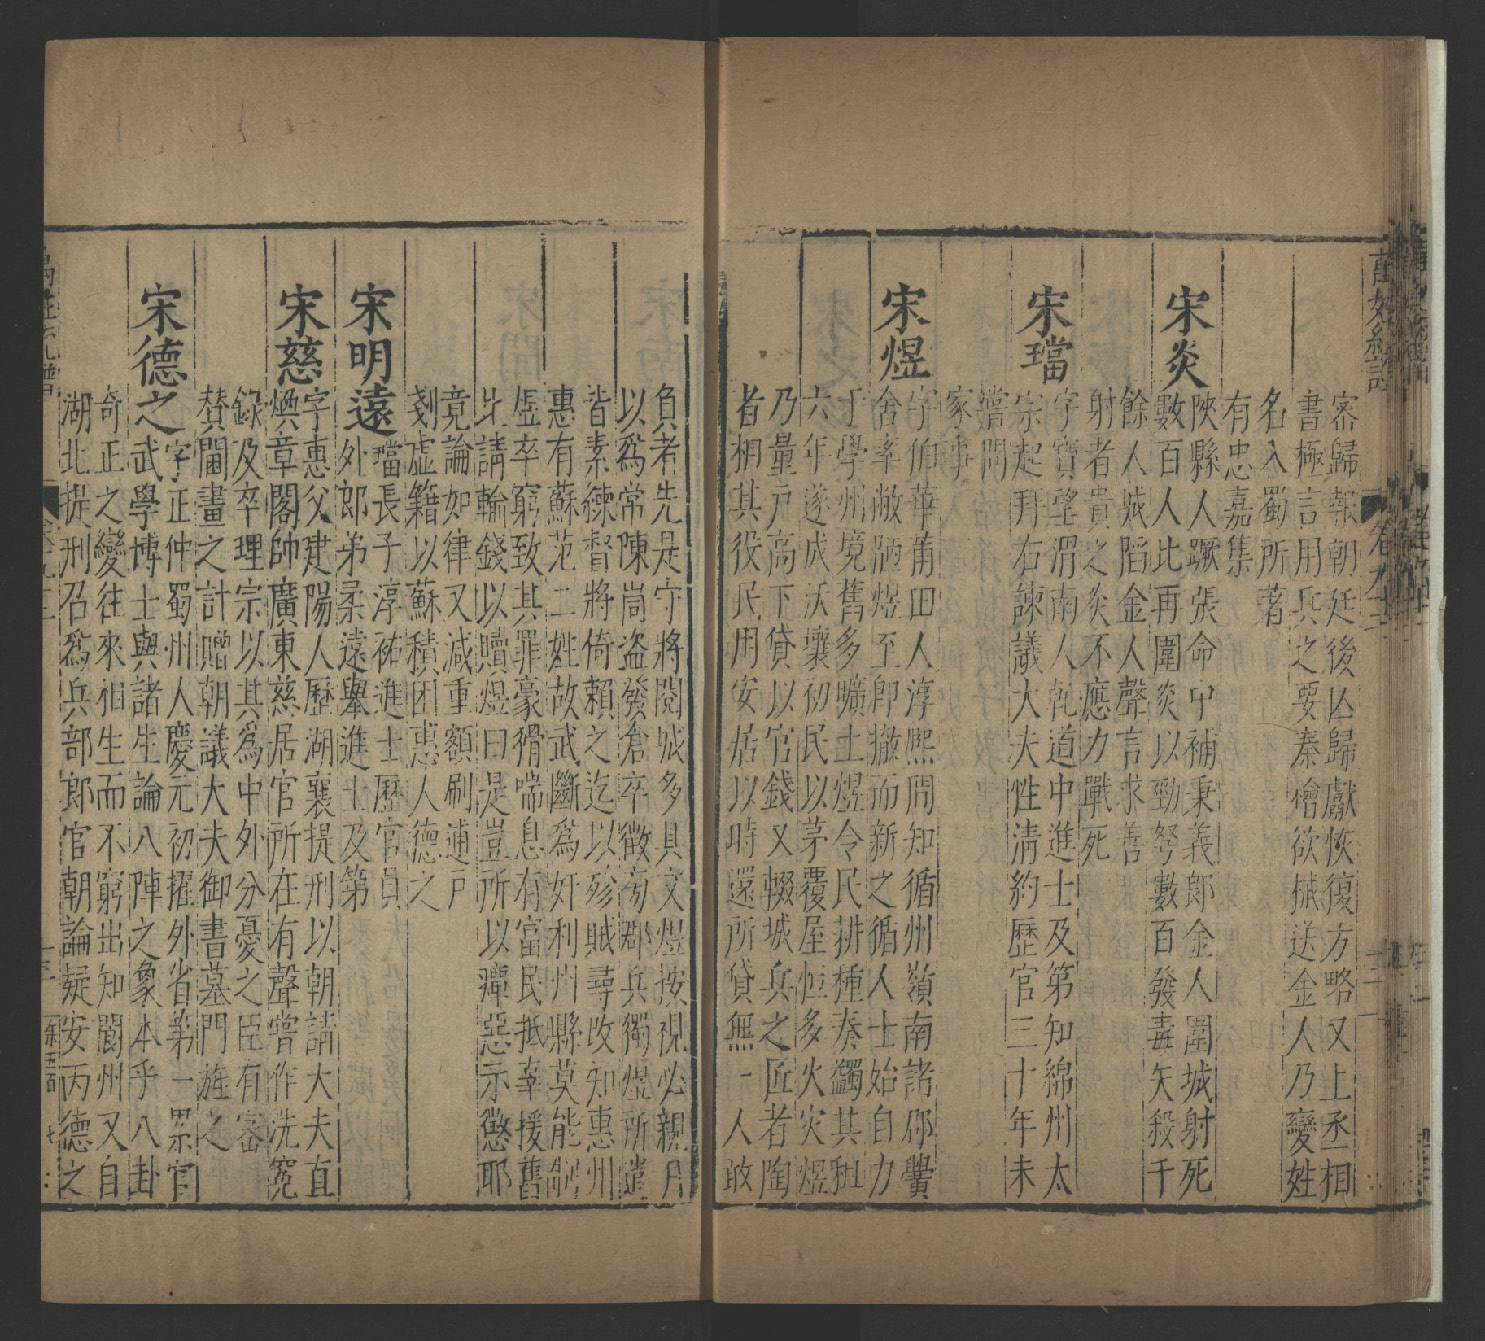 密歸報朝廷後囚歸獻恢復方略又上丞相
書極言用兵之要秦檜欲械送金人乃變姓
名入蜀所著
有忠嘉集
宋炎
陜縣人蹶張命中補秉義郎金人圍城射死
數百人比再圍炎以勁弩數百發毒矢殺千
餘人城陷金人聲言求善
射者貴之炎不應力戰死
宋璫
字寶望渭南人乾道中進士及第知綿州太
宗起拜右諫議大夫性清約歷官三十年未
嘗問
家事
宋煜
字伯華莆田人淳熙間知循州嶺南諸郡黌
舍率敝陋煜至卽撤而新之循人士始自力
于學州境舊多曠土煜令民耕種奏蠲其租
六年遂成沃壤初民以茅覆屋恒多火灾煜
乃量戶高下貸以官錢又輟城兵之匠者陶
者相其役民用安居以時還所貸無一人敢
負者先是守將閱城多具文煜按視必親月
以為常陳崗盜發倉卒徵旁郡兵獨煜所遣
皆素練督將倚賴之迄以殄賊尋改知惠州
惠有蘇范二姓故武斷為奸利州縣莫能制
虛卒窮致其罪豪猾喘息有富民抵辜援舊
比請輸錢以贖煜曰是豈所以癉惡示懲耶
竟論如律又減重額刷逋戶
剗虛籍以蘇積困惠人德之
宋明遠
璫長子淳祐進士歷官員
外郎弟柔遠舉進士及第
宋慈
字惠父建陽人歷湖襄提刑以朝請大夫直
煥章閣帥廣東慈居官所在有聲嘗作洗冤
錄及卒理宗以其為中外分憂之臣有密
贊閫畫之計贈朝議大夫御書墓門旌之
宋德之
字正仲蜀州人慶元初擢外省第一累官
武學博士與諸生論八陣之象本乎八卦
奇正之變往來相生而不窮出知閬州又自
湖北提刑召為兵部郎官朝論疑安丙德之